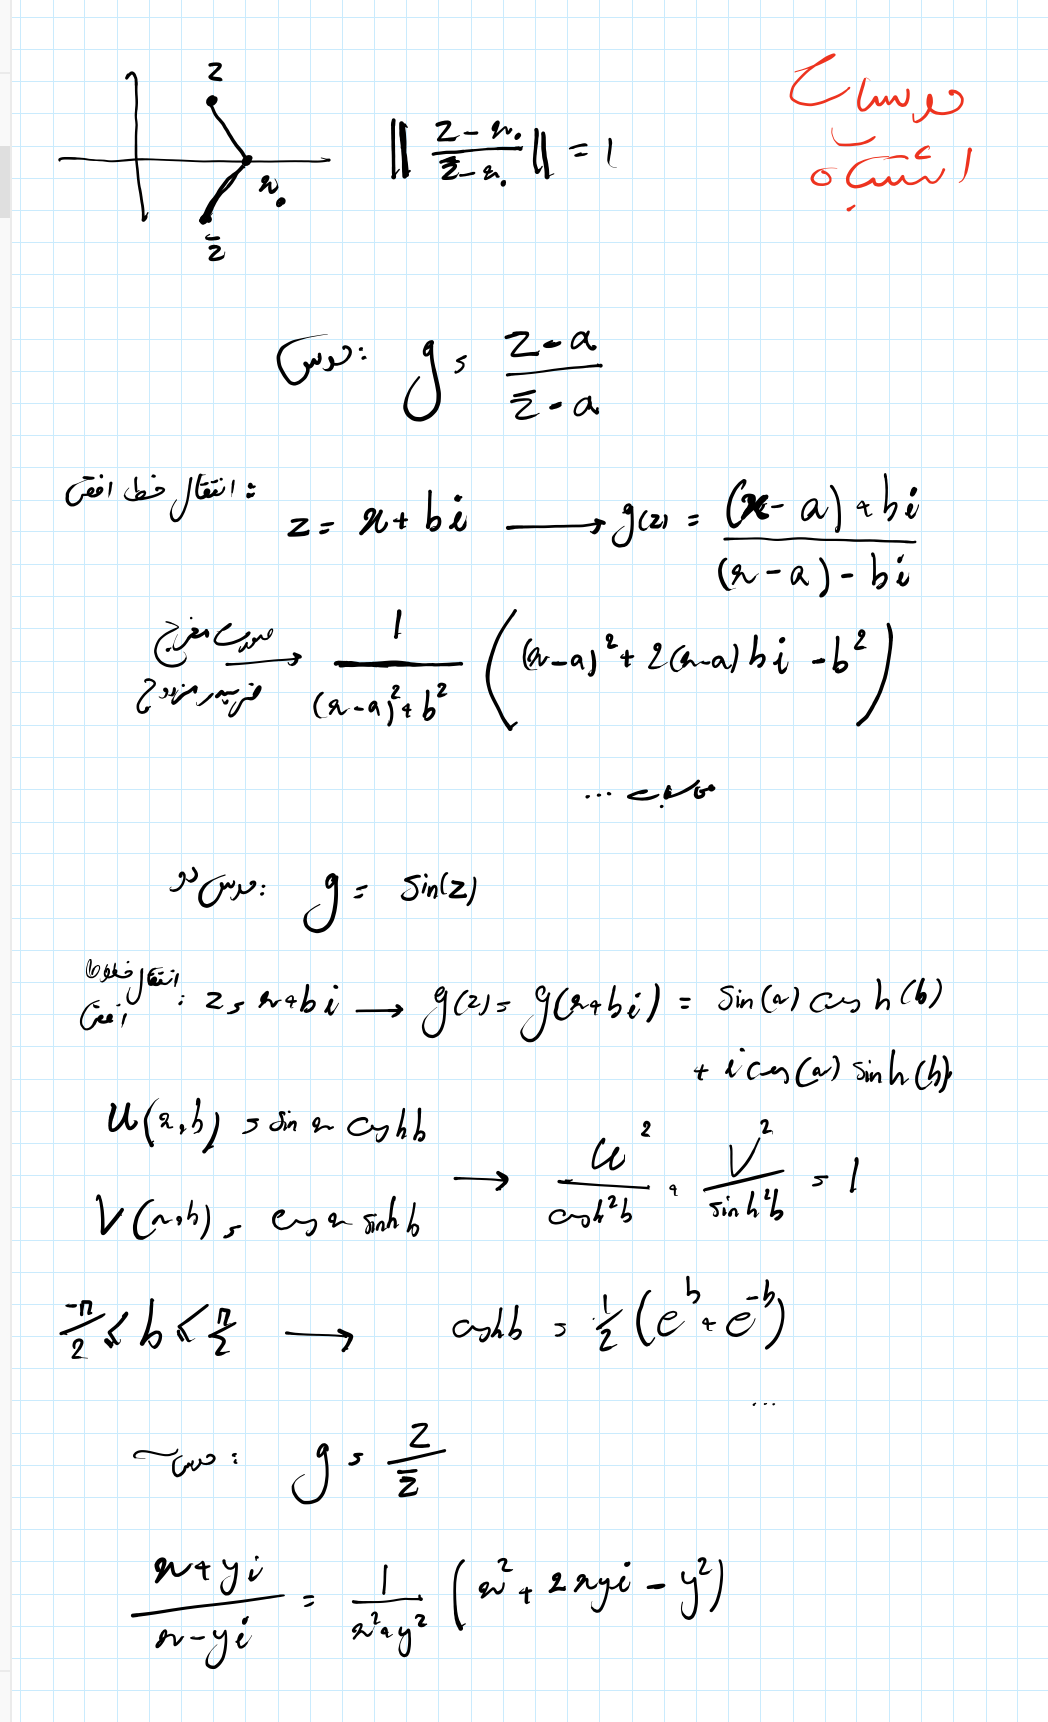 حدسهای
اشتباه
z
x₀
z̄
‖ (z - x₀)/(z̄ - x₀) ‖ = 1
حدس: g = (z - a)/(z̄ - a)
انتقال خط افقی: z = x + bi ⟶ g(z) = ((x - a) + bi)/((x - a) - bi)
صورت مخرج ضربدر مزدوج ⟶ 1/((x-a)² + b²) ((x-a)² + 2(x-a)bi - b²)
محاسبات ...
حدس دو: g = sin(z)
انتقال خطوط افقی: z = x + bi ⟶ g(z) = g(x+bi) = sin(x) cosh(b)
+ i cos(x) sinh(b)
u(x,b) = sin x cosh b
v(x,b) = cos x sinh b ⟶ u²/cosh²b + v²/sinh²b = 1
-π/2 ≤ b ≤ π/2 ⟶ cosh b = 1/2 (e^b + e^-b)
...
حدس: g = z/z̄
(x + yi)/(x - yi) = 1/(x² + y²) (x² + 2xyi - y²)